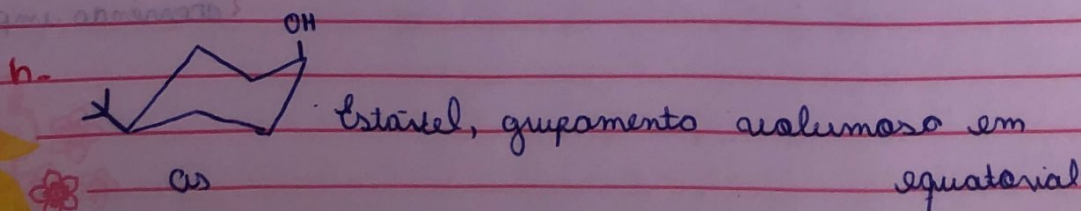 OH
h-
Estável, grupamento volumoso em
cis equatorial